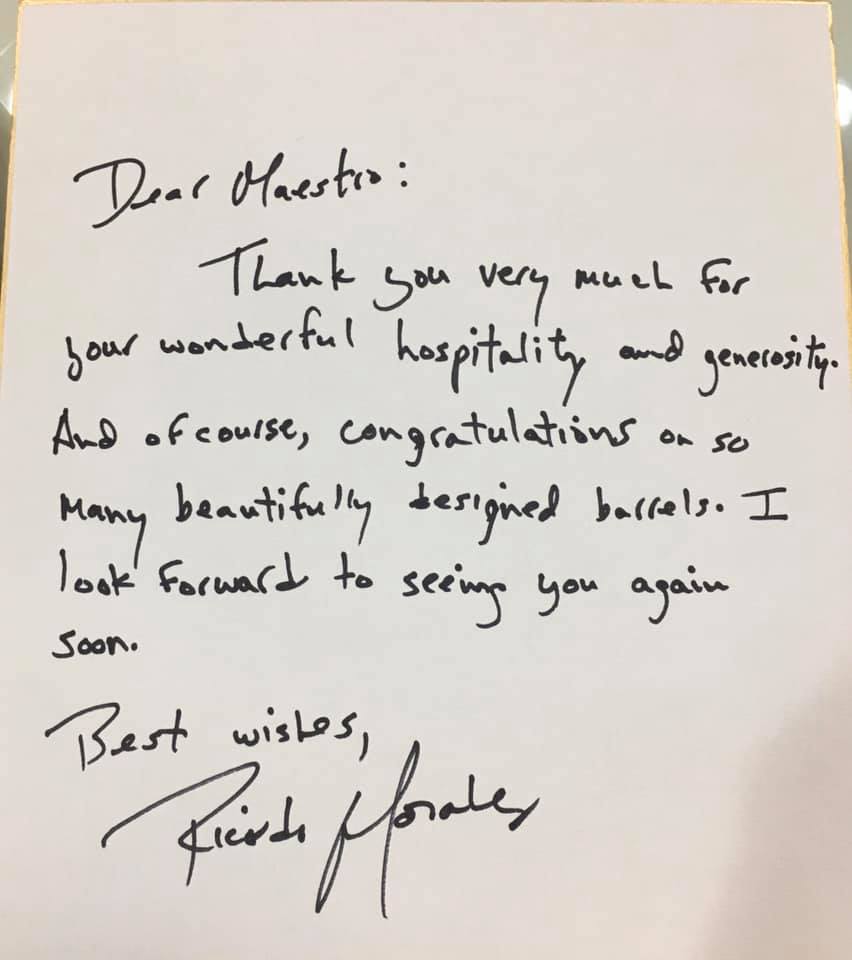 Dear Maestro:
Thank you very much for
your wonderful hospitality and generosity.
And of course, congratulations on so
many beautifully designed barrels. I
look forward to seeing you again
soon.
Best wishes,
Ricardo Morales